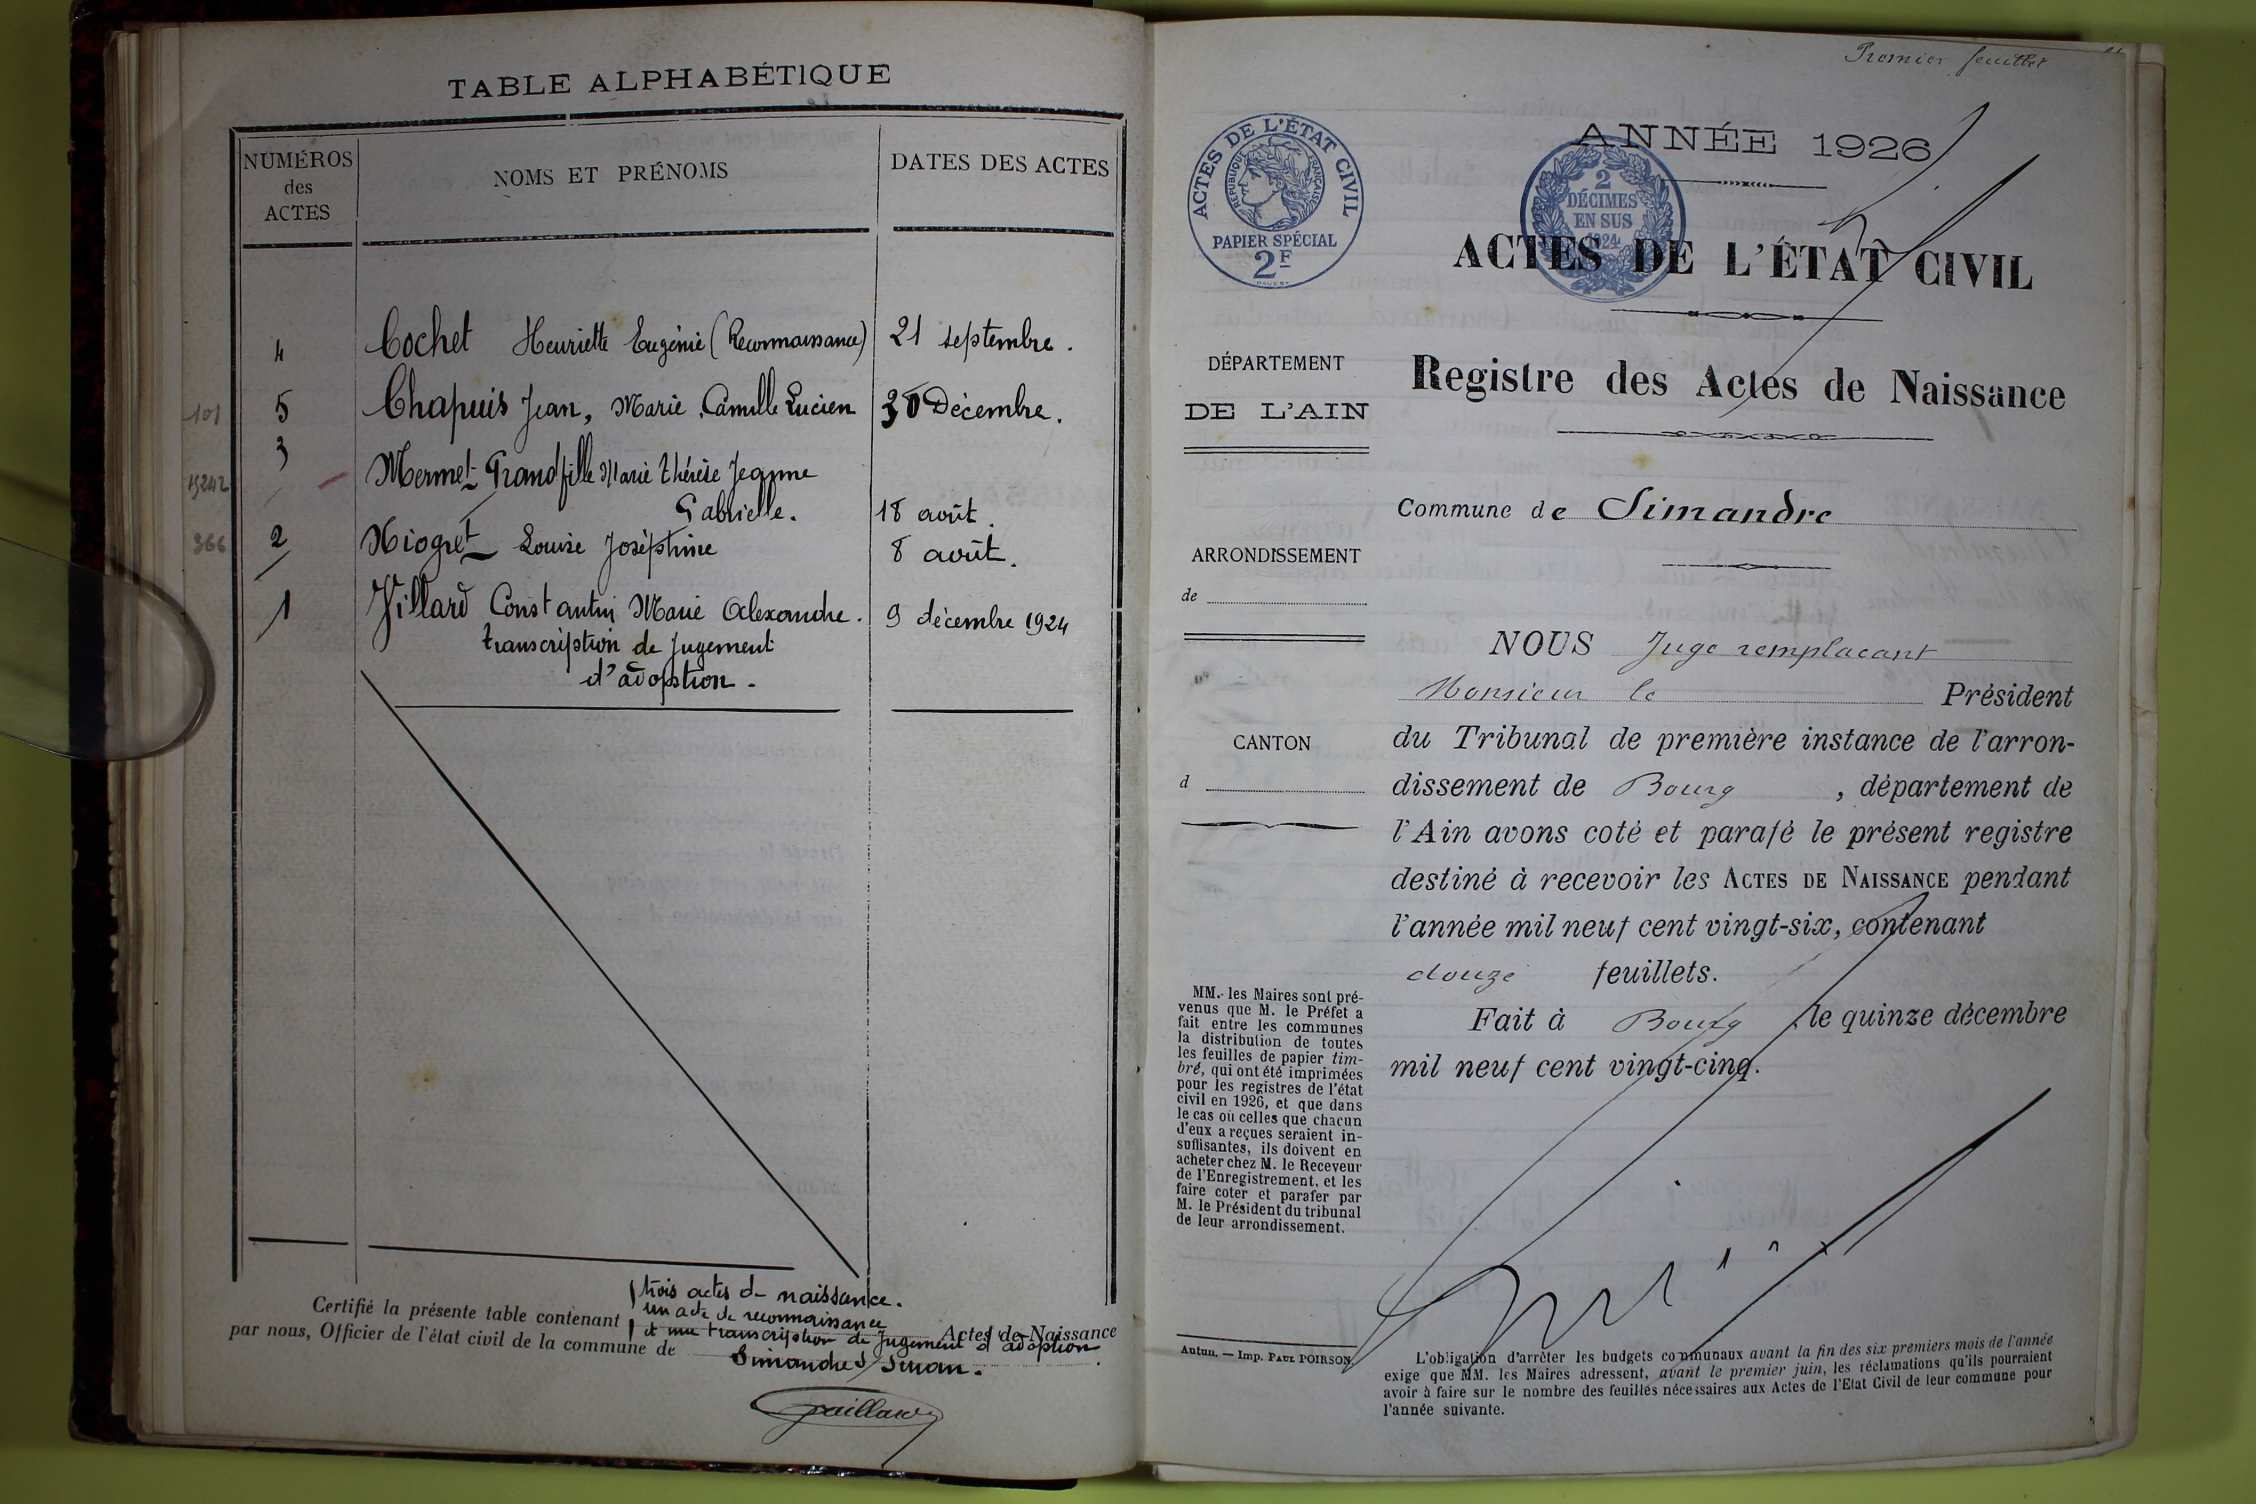 TABLE ALPHABÉTIQUE
NUMÉROS des ACTES
NOMS ET PRÉNOMS
DATES DES ACTES
4 Cochet Henriette Eugénie (Reconnaissance) 21 septembre.
101 5 Chapuis Jean, Marie Camille Lucien 30 Décembre.
3 Mermet-Grandfille Marie Thérèse Jeanne
Gabrielle. 18 août.
366 2 Niogret Louise Joséphine 8 août.
1 Villard Constantin Marie Alexandre. 9 décembre 1924
transcription de Jugement
d'adoption.
trois actes de naissance.
Certifié la présente table contenant un acte de reconnaissance
et une transcription de Jugement d'adoption Actes de Naissance
par nous, Officier de l'état civil de la commune de
Simandre s/ Suran.
Gaillard
Premier feuillet
ACTES DE L'ÉTAT CIVIL
RÉPUBLIQUE FRANÇAISE
PAPIER SPÉCIAL
2F
2
DÉCIMES
EN SUS
1924
ANNÉE 1926
ACTES DE L'ÉTAT CIVIL
Registre des Actes de Naissance
DÉPARTEMENT
DE L'AIN
ARRONDISSEMENT
de
CANTON
d
Commune de Simandre
NOUS Juge remplacant
Monsieur le Président
du Tribunal de première instance de l'arron-
dissement de Bourg, département de
l'Ain avons coté et parafé le présent registre
destiné à recevoir les ACTES DE NAISSANCE pendant
l'année mil neuf cent vingt-six, contenant
douze feuillets.
Fait à Bourg, le quinze décembre
mil neuf cent vingt-cinq.
MM. les Maires sont pré-
venus que M. le Préfet a
fait entre les communes
la distribution de toutes
les feuilles de papier tim-
bré, qui ont été imprimées
pour les registres de l'état
civil en 1926, et que dans
le cas où celles que chacun
d'eux a reçues seraient in-
suffisantes, ils doivent en
acheter chez M. le Receveur
de l'Enregistrement, et les
faire coter et parafer par
M. le Président du tribunal
de leur arrondissement.
Autun. — Imp. PAUL POIRSON.
L'obligation d'arrêter les budgets communaux avant la fin des six premiers mois de l'année
exige que MM. les Maires adressent, avant le premier juin, les réclamations qu'ils pourraient
avoir à faire sur le nombre des feuilles nécessaires aux Actes de l'Etat Civil de leur commune pour
l'année suivante.